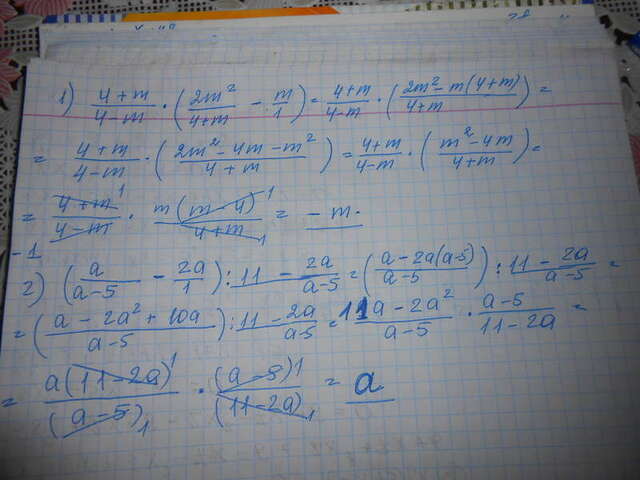 1) (4+m)/(4-m) · (2m²/(4+m) - m/1) = (4+m)/(4-m) · ((2m² - m(4+m))/(4+m)) =
= (4+m)/(4-m) · ((2m² - 4m - m²)/(4+m)) = (4+m)/(4-m) · ((m² - 4m)/(4+m)) =
= (4+m)¹/(4-m) · m(m-4)¹/(4+m)₁ = -m.
-1
2) (a/(a-5) - 2a/1) : (11-2a)/(a-5) = ((a - 2a(a-5))/(a-5)) : (11-2a)/(a-5) =
= ((a - 2a² + 10a)/(a-5)) : (11-2a)/(a-5) = (11a - 2a²)/(a-5) · (a-5)/(11-2a) =
= a(11-2a)¹/(a-5)₁ · (a-5)¹/(11-2a)₁ = a